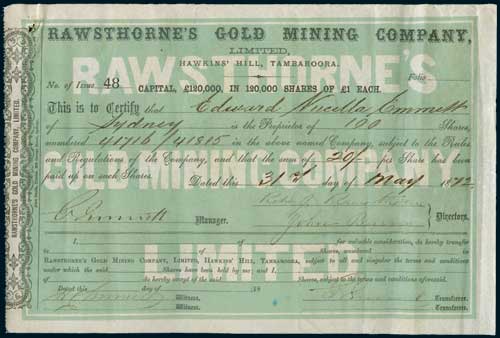 RAWSTHORNE'S GOLD MINING COMPANY,
LIMITED,
HAWKINS' HILL, TAMBAROORA.
No. of Issue 48 Folio
CAPITAL, £120,000, IN 120,000 SHARES OF £1 EACH.
This is to Certify that Edward Nucella Emmett
of Sydney is the Proprietor of 100 Shares,
numbered 41716/41815 in the above named Company, subject to the Rules
and Regulations of the Company, and that the sum of 20/- per Share has been
paid up on such Shares. Dated this 31st day of May 1872
Emmett Manager. Directors.
I, for valuable consideration, do hereby transfer
to of Shares, numbered in
RAWSTHORNE'S GOLD MINING COMPANY, LIMITED, HAWKINS' HILL, TAMBAROORA, subject to all and singular the terms and conditions
under which the said Shares have been held by me; and I,
of do hereby accept of the said Shares, subject to the terms and conditions aforesaid.
Dated this day of 18
Witness. Transferor.
Witness. Transferee.
RAWSTHORNE'S
GOLD MINING COMPANY
LIMITED
RAWSTHORNE'S GOLD MINING COMPANY, LIMITED.